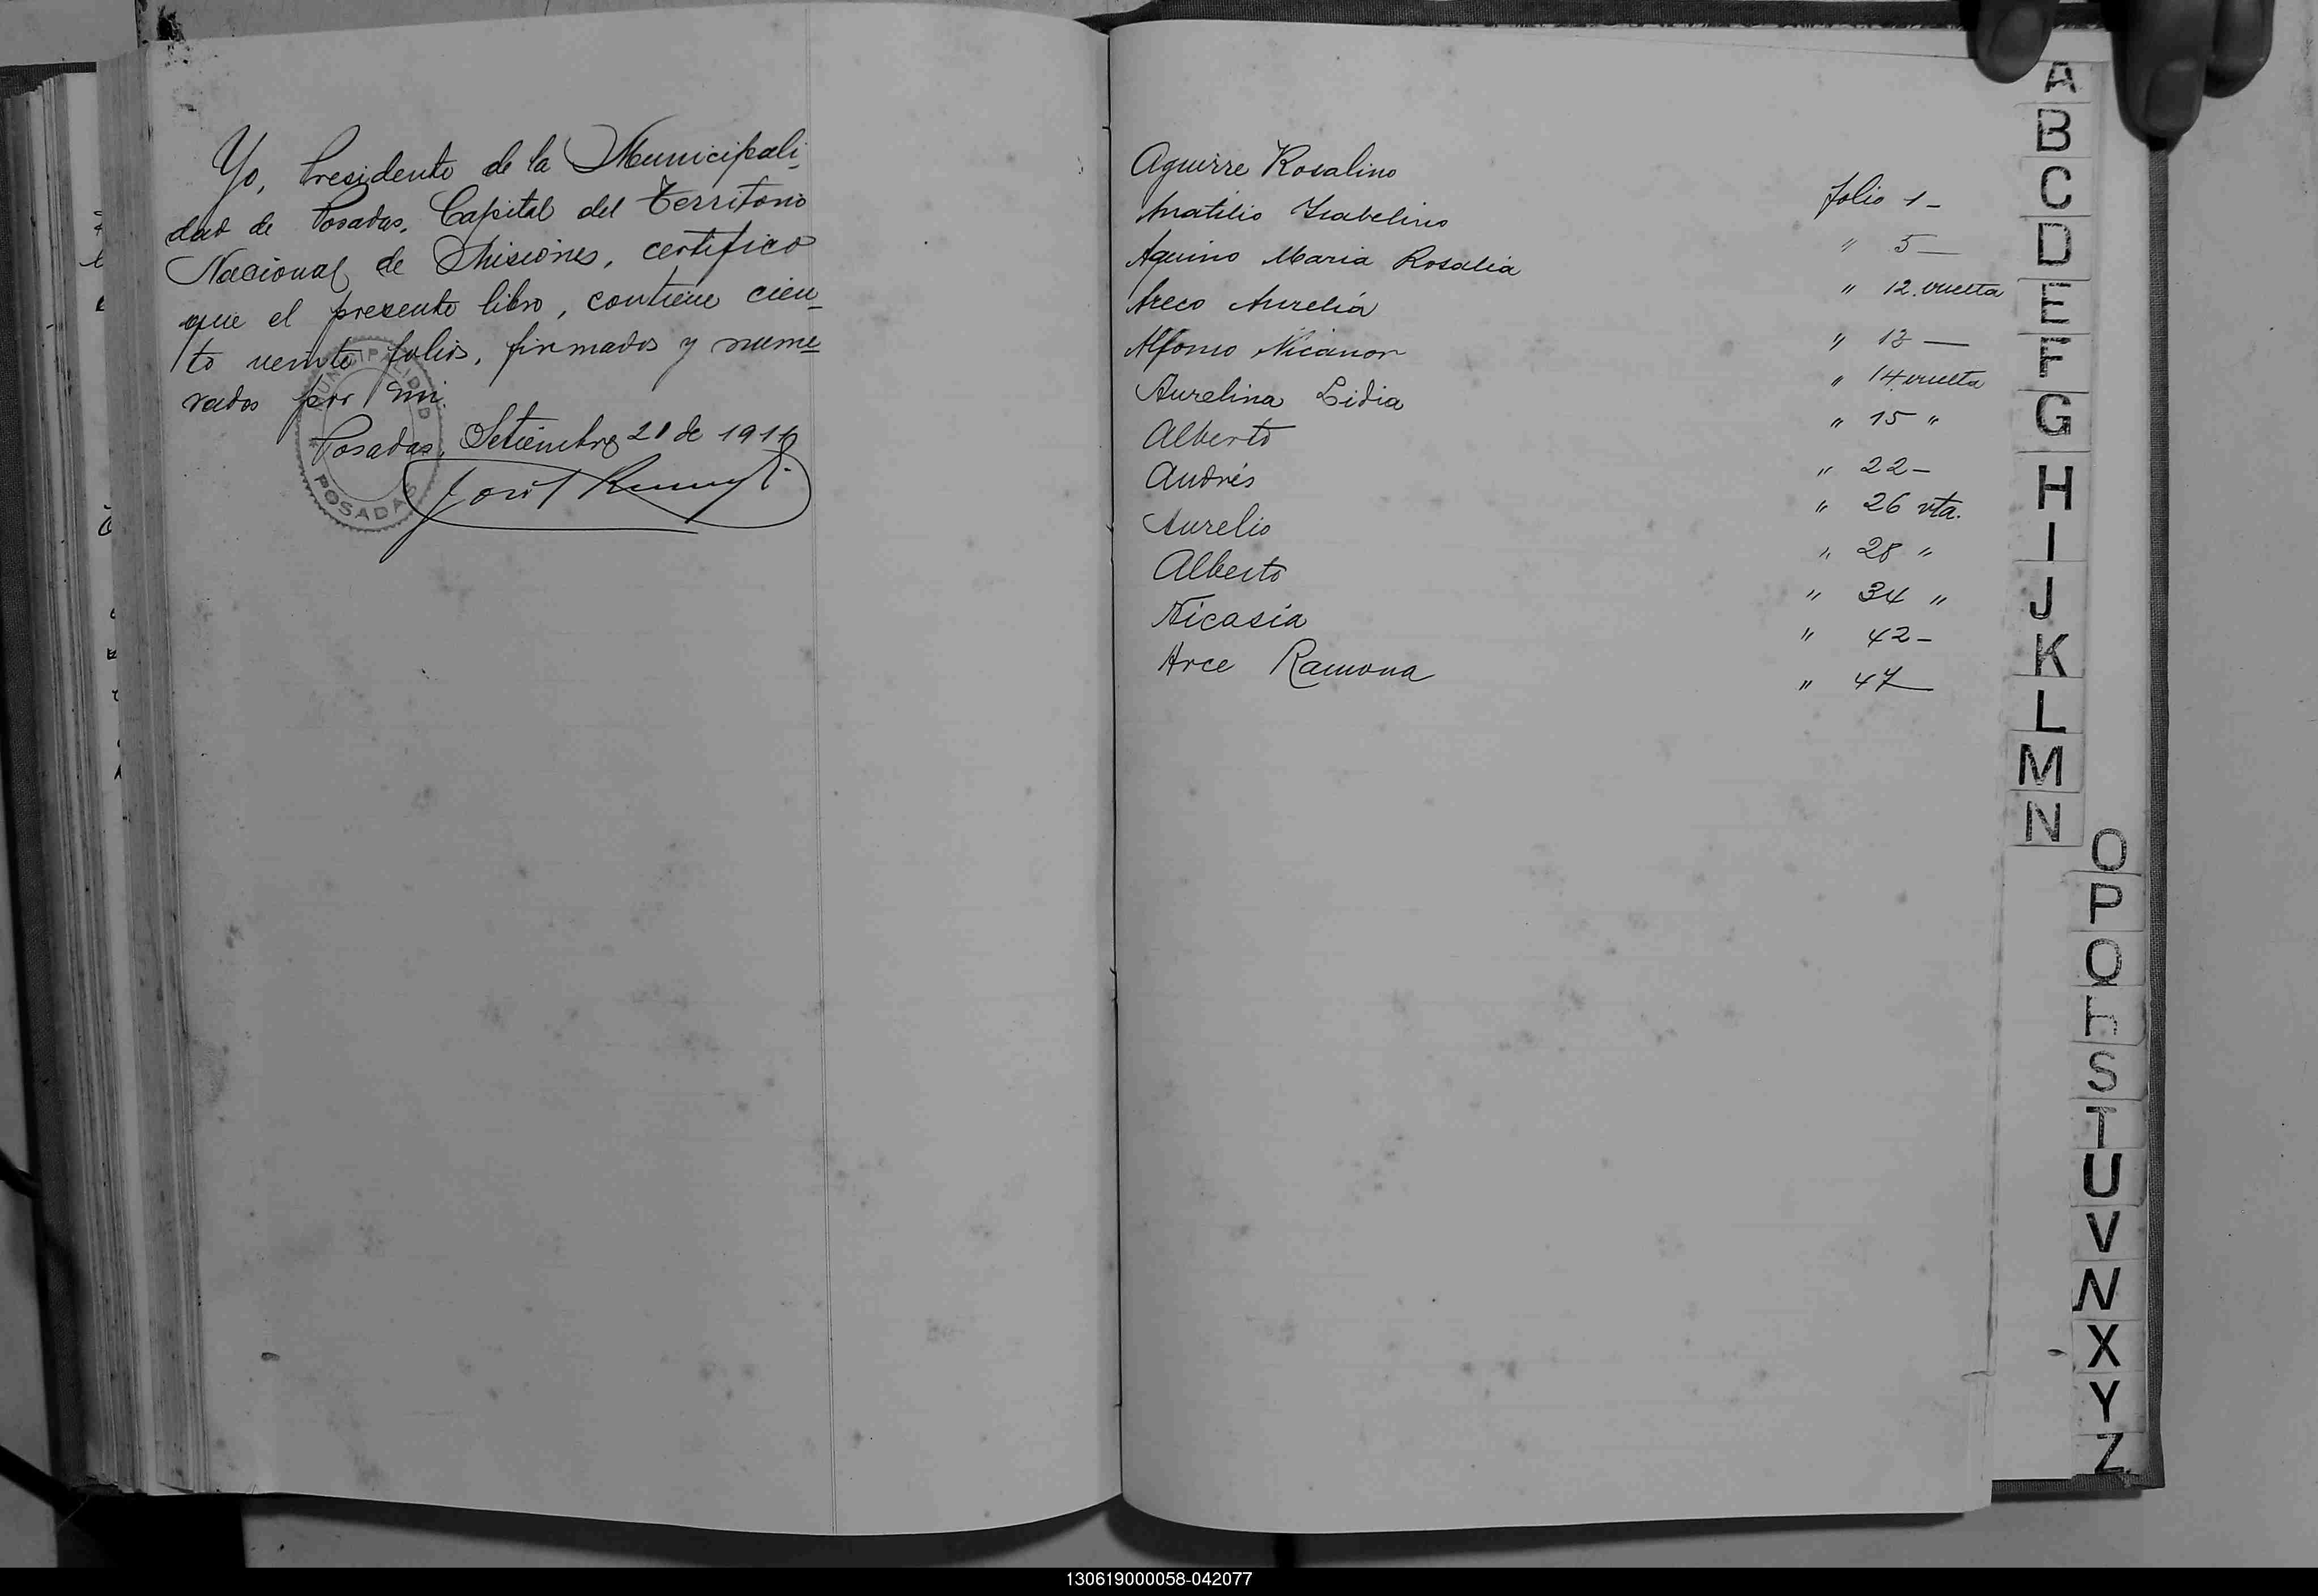 Yo, Presidente de la Municipali-
dad de Posadas, Capital del Territorio
Nacional de Misiones, certifico
que el presente libro, contiene cien-
to veinte folios, firmados y nume-
rados por mi.
Posadas, Setiembre 21 de 191
MUNICIPALIDAD
POSADAS
Aguirre Rosalino folio 1 -
Anatilio Isabelino " 5 —
Aquino Maria Rosalia " 12 vuelta
Areco Aurelia " 13 —
Alfonso Nicanor " 14 vuelta
Aurelina Lidia " 15 "
Alberto " 22 -
Andrés " 26 vta.
Aurelio " 28 "
Alberto " 34 "
Nicasia " 42 -
Arce Ramona " 47 —
A
B
C
D
E
F
G
H
I
J
K
L
M
N
O
P
Q
S
T
U
V
X
Y
Z
130619000058-042077